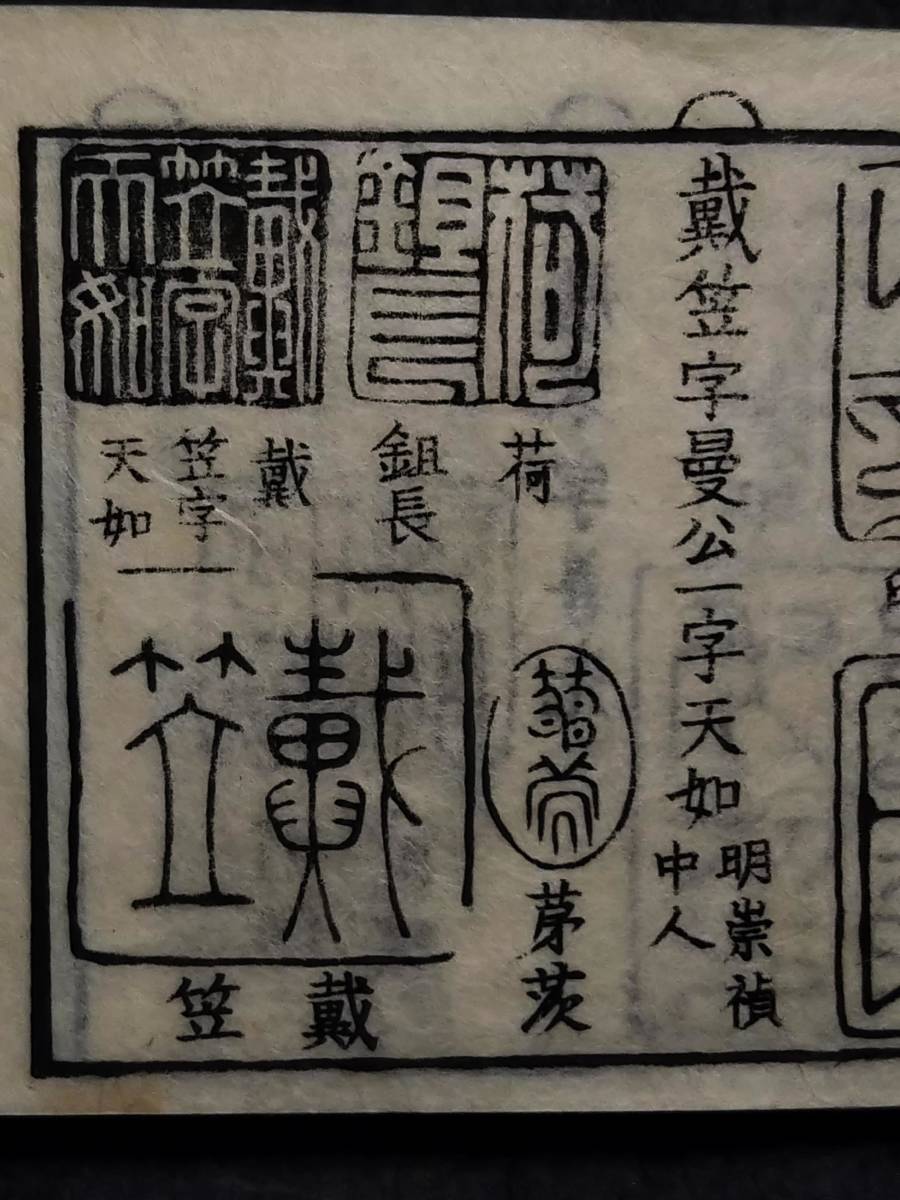 戴笠字曼公一字天如
明崇禎
中人
荷
鉏長
戴
笠字
天如
茅茨
戴
笠